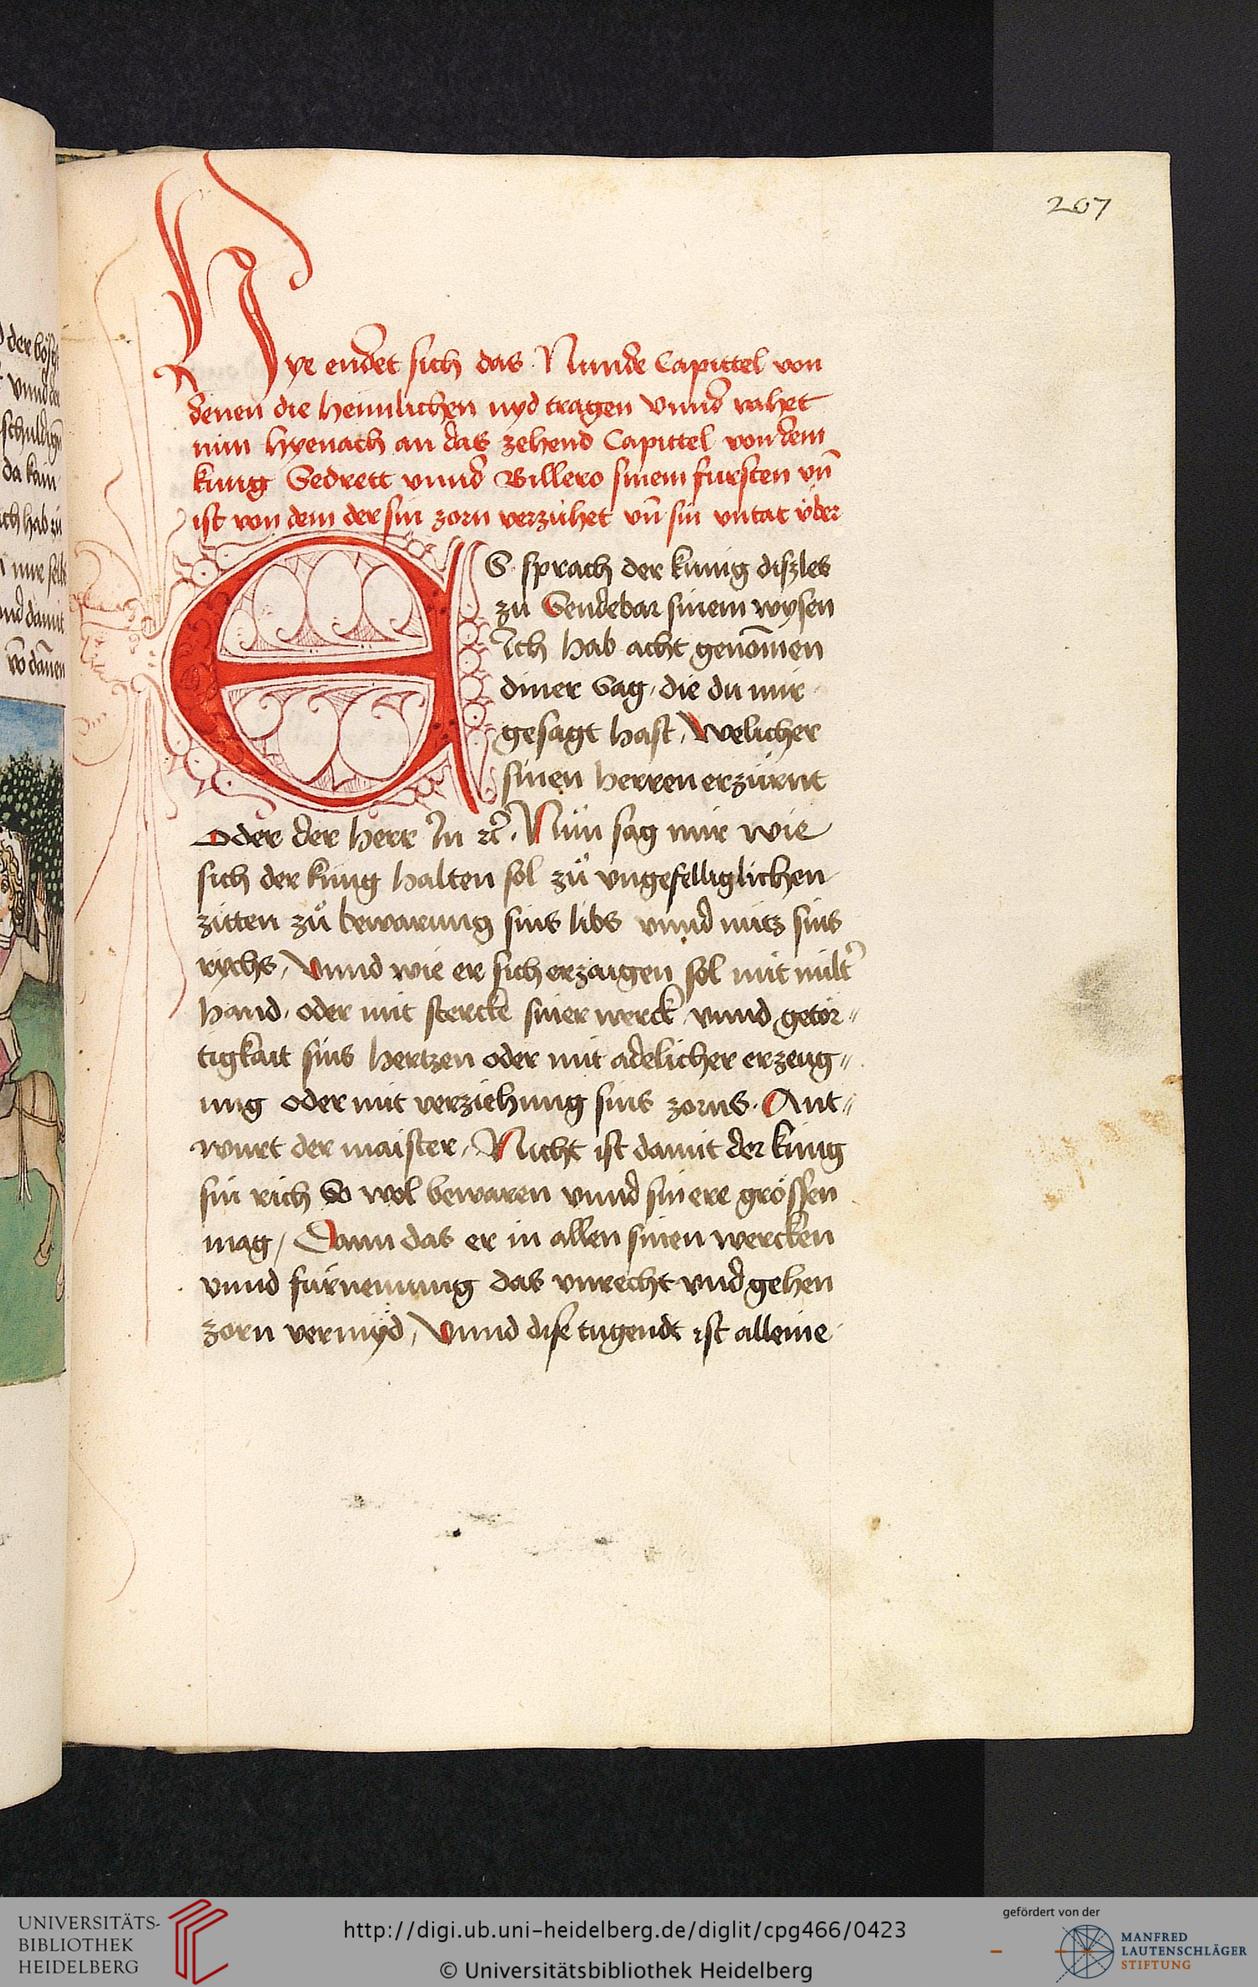 207
Hye endet sich das Nunde Capittel von
denen die heimlichen nyd tragen vnnd vahet
nun hyenach an das zehend Capittel von dem
kunig Sedrett vnnd Billero sinem fursten vn̄
ist von dem der sin zorn verzühet vn̄ sin vntat v̈ber
ES sprach der kunig diszles
zu Sendebar sinem wysen
Ich hab acht genōmen
diner Sag, die du mir
gesagt hast, Welicher
sinen herren erzürnt
oder der herr In ꝛc̄. Nün sag mir wie
sich der kung halten sol zuͦ vngefelliglichen
zitten zuͦ bewarung sins libs vnnd nutz sins
rychs, Vnnd wie er sich erzaigen sol mit milt'
hand, oder mit stercke siner werck vnnd getör-
tigkait sins hertzen oder mit adelicher erzeug-
ung oder mit verziehung sins zorns. Ant-
wurt der maister, Nicht ist damit der kung
sin rich So wol bewaren vnnd sin ere grössen
mag, Dann das er in allen sinen wercken
vnnd fürnemung das vnrecht vnd gehen
zorn vermyd, Vnnd dise tugendt ist alleine
der bösz
da kam
ich hab zu
mir selb
vnd damit
vō dānen
UNIVERSITÄTS-
BIBLIOTHEK
HEIDELBERG
http://digi.ub.uni-heidelberg.de/diglit/cpg466/0423
© Universitätsbibliothek Heidelberg
gefördert von der
MANFRED
LAUTENSCHLÄGER
STIFTUNG